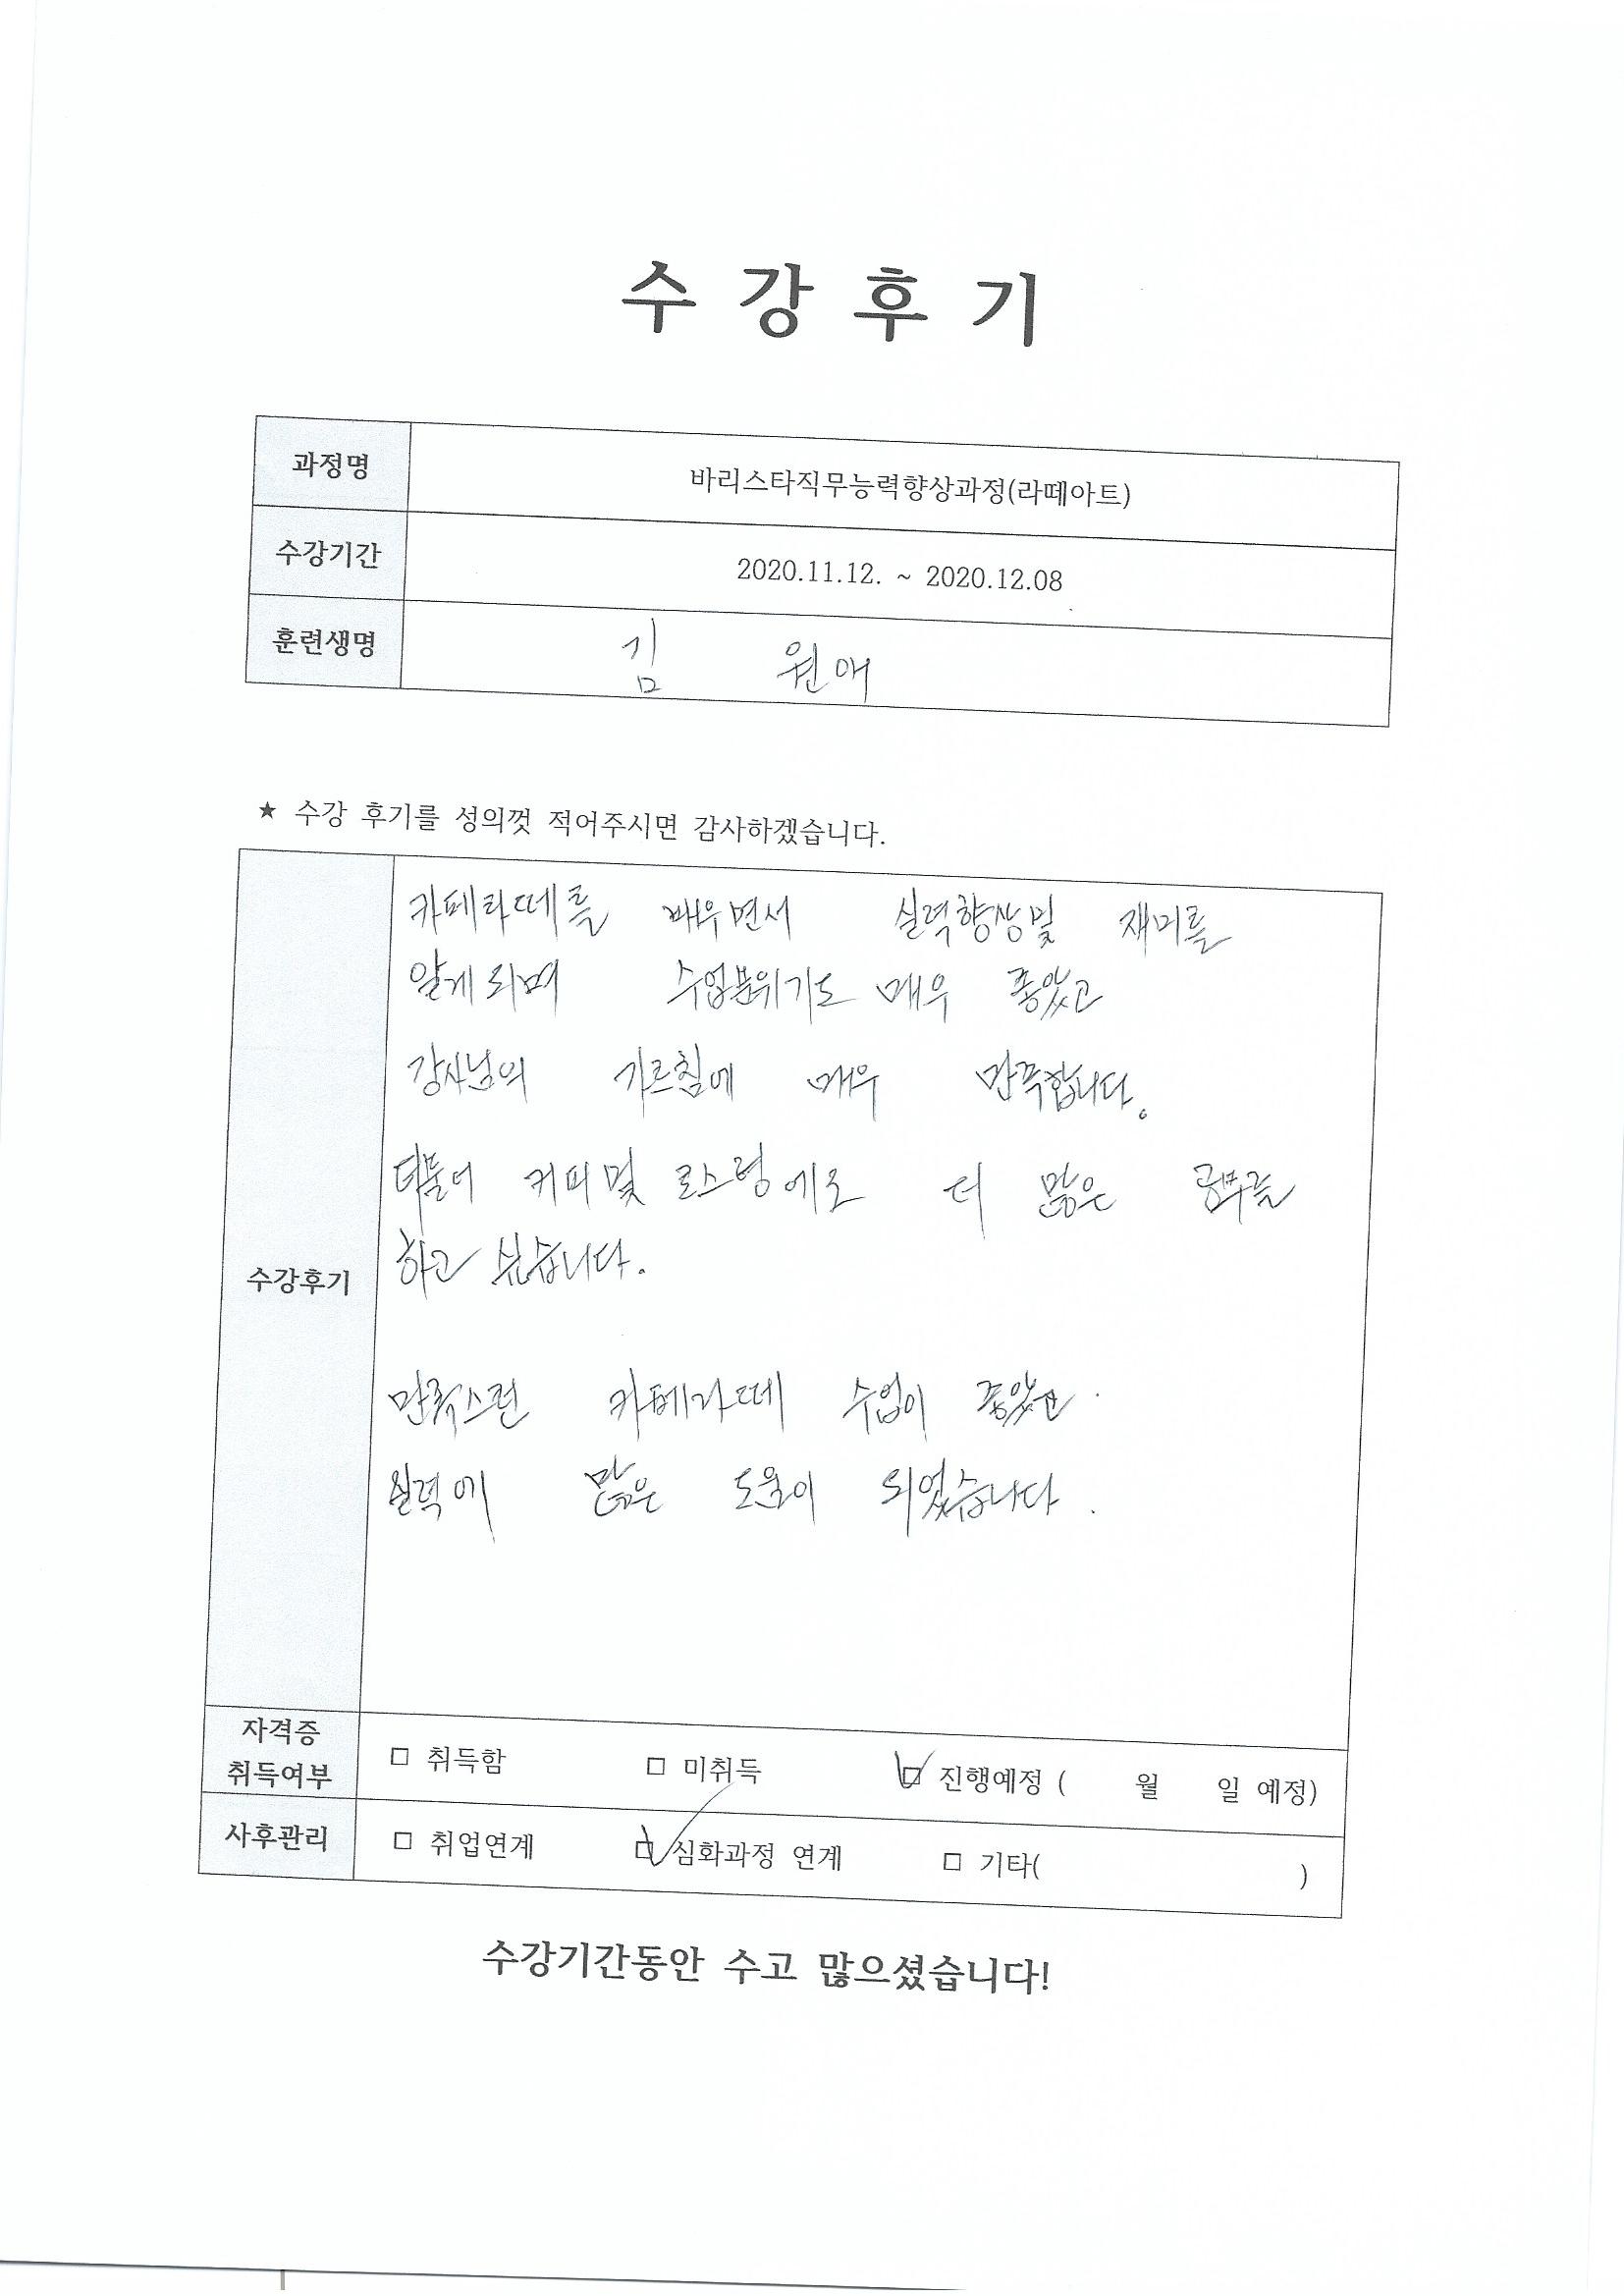 수 강 후 기
과정명 바리스타직무능력향상과정(라떼아트)
수강기간 2020.11.12. ~ 2020.12.08
훈련생명 김 원애
★ 수강 후기를 성의껏 적어주시면 감사하겠습니다.
수강후기
카페라떼를 배우면서 실력향상및 재미를
알게되며 수업분위기도 매우 좋았고
강사님의 가르침에 매우 만족합니다.
더불어 커피및 로스팅에도 더 많은 공부를
하고 싶습니다.
만족스런 카페라떼 수업이 좋았고
실력에 많은 도움이 되었습니다.
자격증
취득여부 □ 취득함 □ 미취득 ☑ 진행예정 ( 월 일 예정)
사후관리 □ 취업연계 ☑ 심화과정 연계 □ 기타( )
수강기간동안 수고 많으셨습니다!